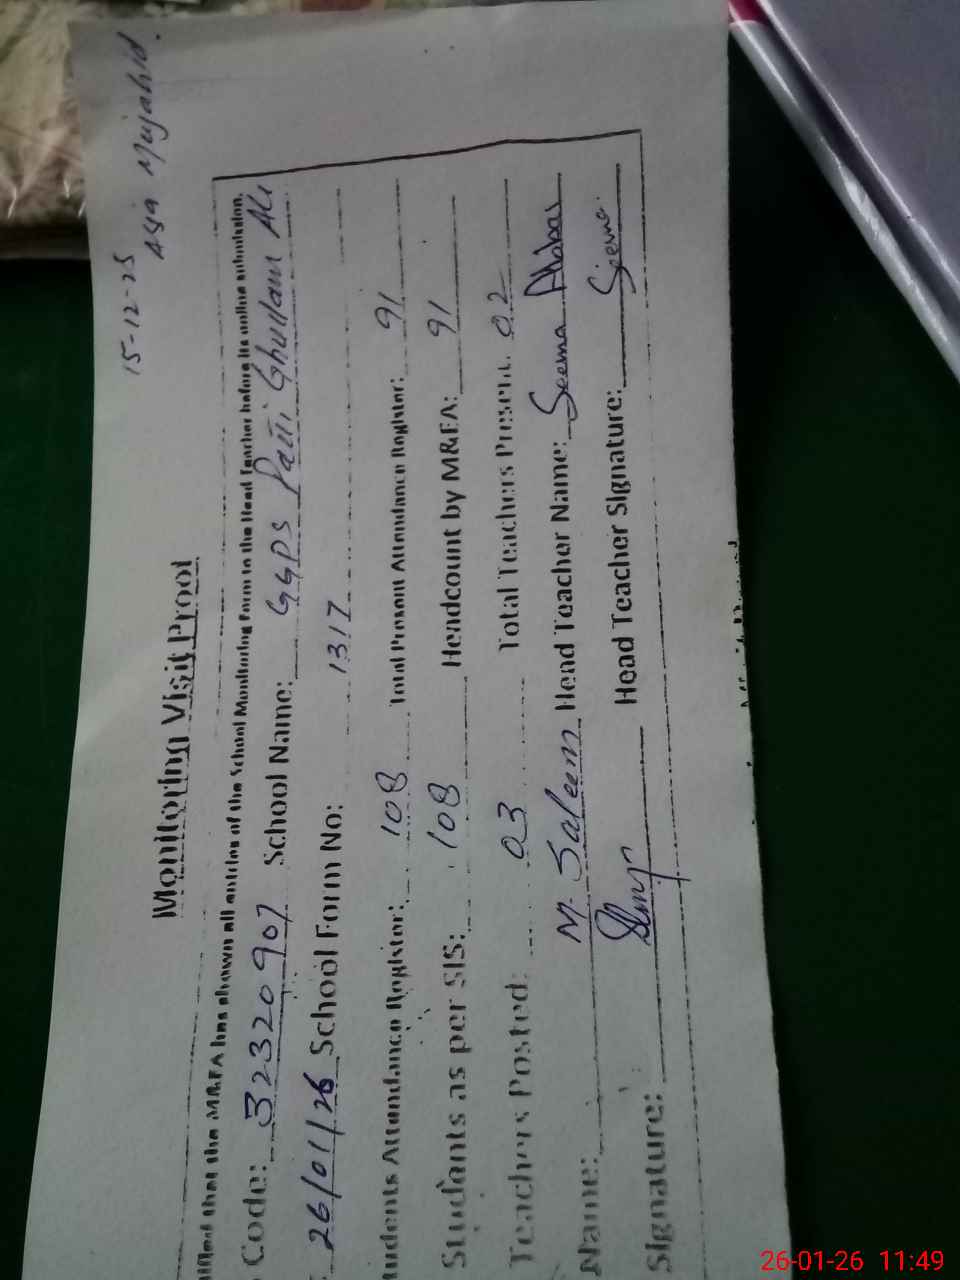 15-12-25
Asia Mujahid.
Monitoring Visit Proof
that the M&EA has shown all entries of the School Monitoring Form to the Head Teacher before its online submission.
Code: 32320907 School Name: GGPS Patti Ghullam Ali
: 26/01/26 School Form No: 1317
tudents Attendance Register: 108 Total Present Attendance Register: 91
Students as per SIS: 108 Headcount by M&EA: 91
Teachers Posted: 03 Total Teachers Present: 02
Name: M. Saleem Head Teacher Name: Seema
Signature: Head Teacher Signature: Seema
26-01-26 11:49